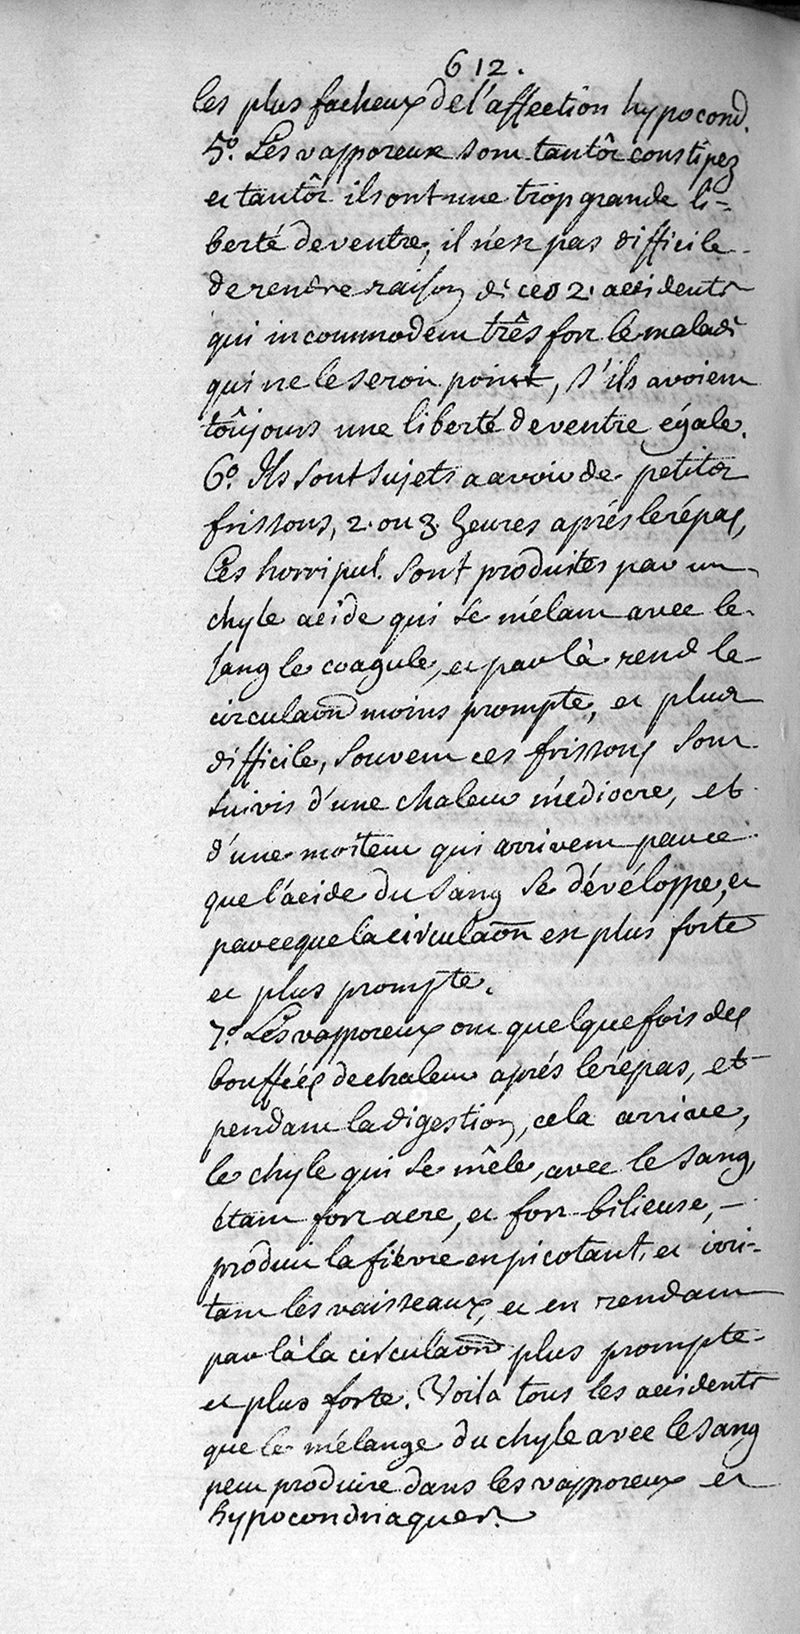 612.
les plus facheux de l'affection hypocond.
5.º Les vapporeux sont tantôt constipez
et tantôt ils ont une trop grande li-
berté de ventre, il n'est pas difficile
de rendre raison de ces 2. accidents
qui incommodent três fort le malade
qui ne le seroit point, s'ils avoient
toûjours une liberté de ventre égale.
6.º Ils sont sujets a avoir de petits
frissons, 2. ou 3. heures aprés le répas,
Ces horripul. sont produites par un
chyle acide qui se mélant avec le
sang le coagule, et par là rend la
circulaõn moins prompte, et plus
difficile, souvent ces frissons sont
suivis d'une chaleur médiocre, et
d'une moiteur qui arrivent parce
que l'acide du sang se dévéloppe, et
parceque la circulaõn est plus forte
et plus prompte.
7.º Les vapporeux ont quelquefois des
bouffées de chaleur aprés le répas, et
pendant la digestion, cela arrive,
le chyle qui se mêle, avec le sang,
étant fort acre, et fort bilieuse, -
produit la fiévre en picotant, et irri-
tant les vaisseaux, et en rendant
par là la circulaõn plus prompte
et plus forte. Voilà tous les accidents
que le mélange du chyle avec le sang
peut produire dans les vapporeux et
hypocondriaques.